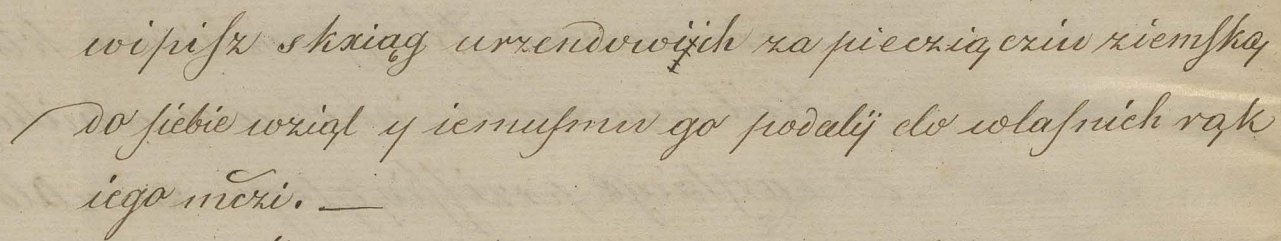 wipiſz skxiąg urzendowijch za piecziącziu ziemſką
do ſiebie wziął y iemuſmu go podalÿ do wlaſnich rąk
iego mczi. —